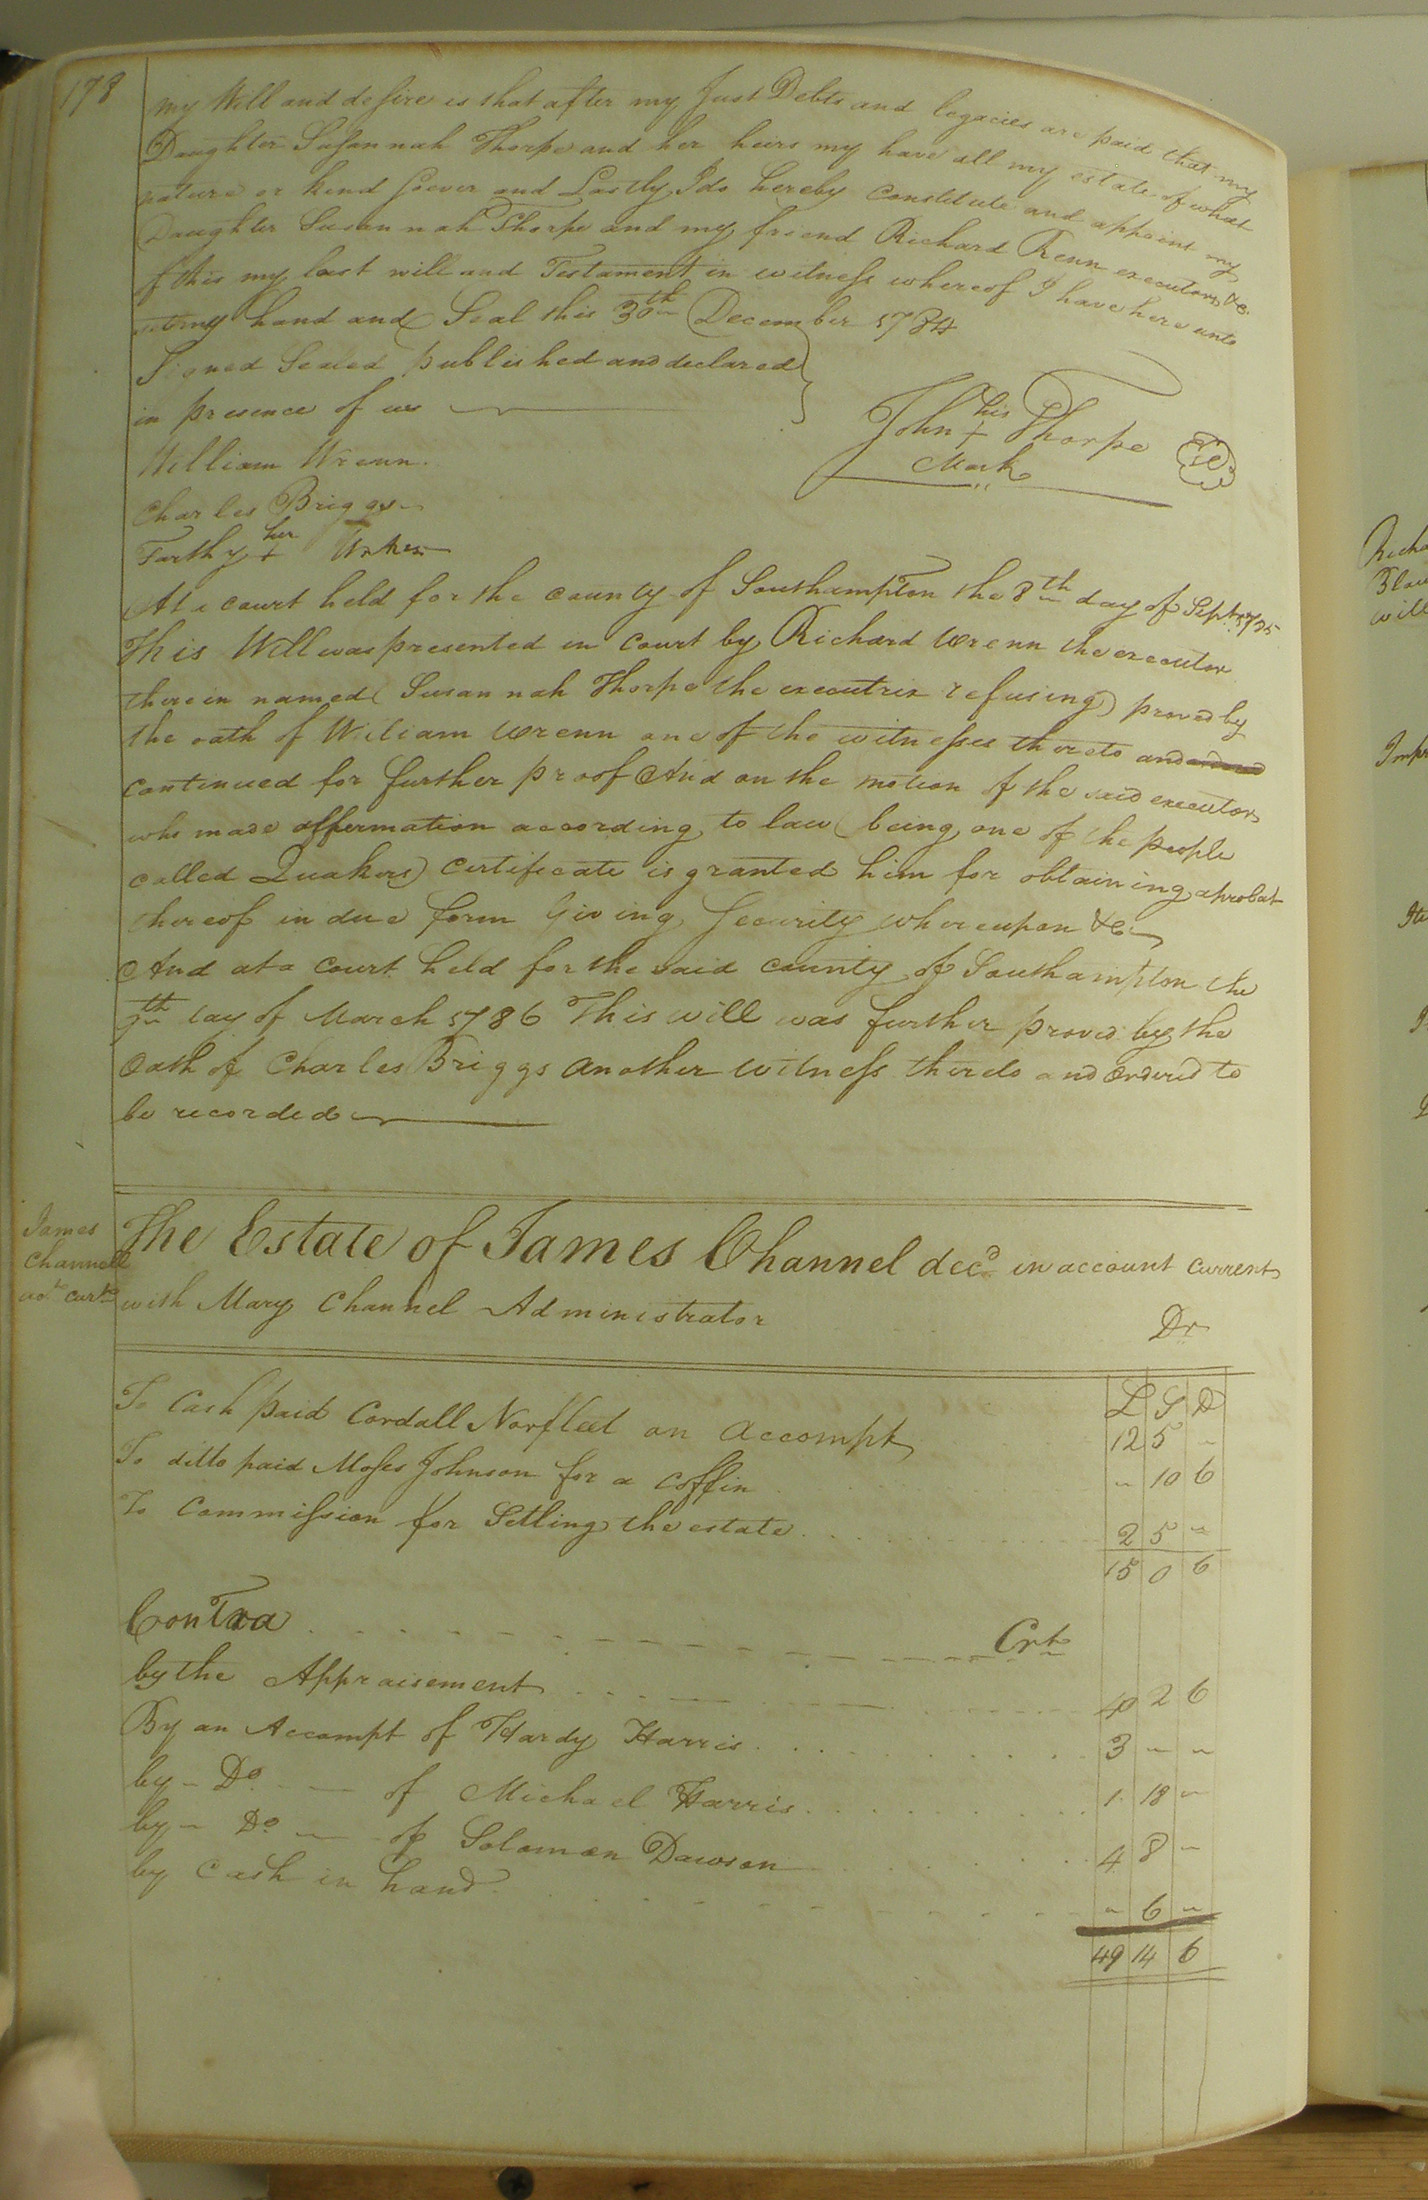 178
my Will and desire is that after my Just Debts and legacies are paid that my
Daughter Susannah Thorpe and her heirs my have all my estate of what
nature or kind soever and Lastly I do hereby constitute and appoint my
Daughter Susannah Thorpe and my friend Richard Renn executors &c.
of this my last will and Testament in witness whereof I have here unto
set my hand and Seal this 30th December 1784
Signed Sealed published and declared
in presence of us
John his + Thorpe
Mark
William Wrenn.
Charles Briggs
her +
At a court held for the county of Southampton the 8th day of Septr 1785
This Will was presented in court by Richard Wrenn the executor
therein named (Susannah Thorpe the executrix refusing) proved by
the oath of William Wrenn one of the witnesses thereto and
continued for further proof And on the motion of the said executor
who made affermation according to law (being one of the people
called Quakers) certificate is granted him for obtaining a probat
thereof in due form Giving Security whereupon &c
And at a court held for the said county of Southampton the
th day of March 1786 This will was further proved by the
Oath of Charles Briggs another witness thereto and ordered to
be recorded
James
Channell
acct. curt
The Estate of James Channel decd. in account current
with Mary Channel Administrator
Dr
L S D
To Cash paid Cordall Norfleet an Accompt 12 5 -
To ditto paid Moses Johnson for a coffin - 10 6
To Commission for Setling the estate 2 5 -
15 0 6
Contra Crt
by the Appraisement 40 2 6
By an Accompt of Hardy Harris 3 - -
by - Do. - of Michael Harris 1. 18 -
by - Do - of Solomon Dawson 4 8 -
by Cash in hand - 6 -
49 14 6
Richa
will